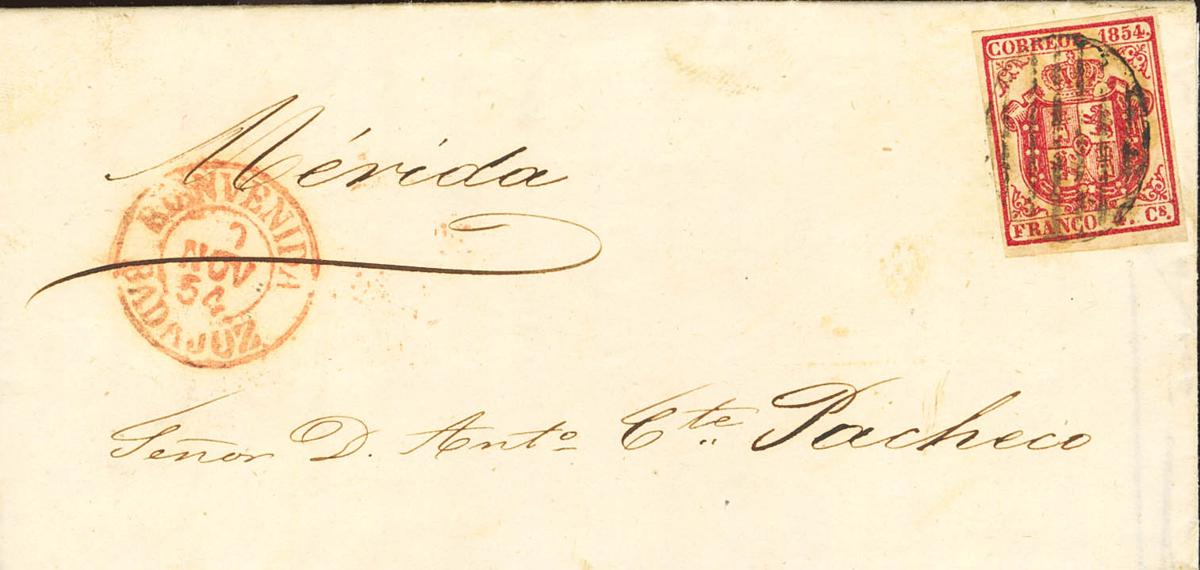 CORREOS 1854.
Mérida
BIENVENIDA
7
NOV
54
BADAJOZ
FRANCO Cs.
Señor D. Antº Cte Pacheco